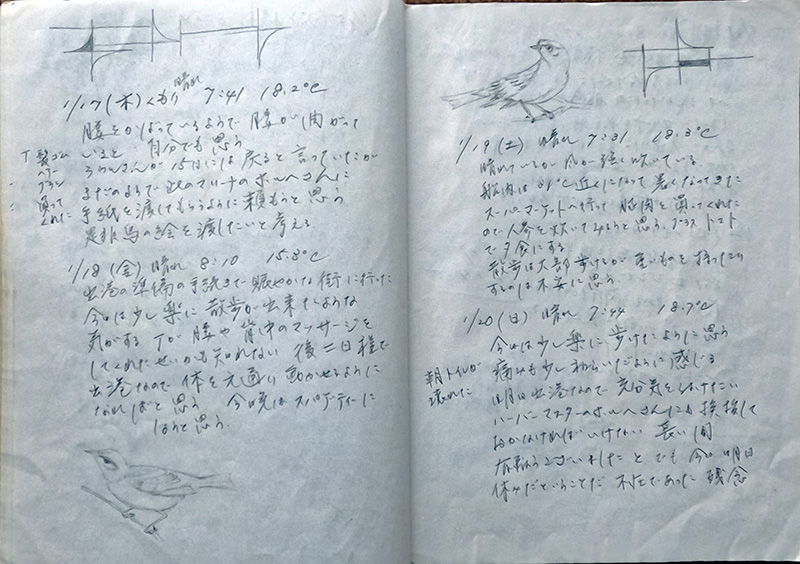 晴れ
1/17(木)くもり 7:41 18.2°C
腰をかばっているようで 腰が曲がって
いると 自分でも思う
さんが 15日には戻ると言っていたが
まだのようで 此のマリーナのホルヘさんに
手紙を渡してもらうように頼もうと思う
是非鳥の絵を渡したいと考える
T 髪ゴム
ヘアー
ブラシ
買って
くれた
1/18(金)晴れ 8:10 15.8°C
出港の準備の手続きで 賑やかな街に行った
今日は少し楽に 散歩が出来たような
気がする Tが 腰や背中のマッサージを
してくれたせいかも知れない 後二日程で
出港なので 体を元通り動かせるように
なればと思う 今晩はスパゲティーに
しようと思う.
1/19(土) 晴れ 7:31 18.3°C
晴れているが 風が強く吹いている.
船内は 近くになって 暑くなってきた
スーパーマーケットへ行って 豚肉を買ってくれた
ので 人参を炊いてみようと思う. プラス トマト
で夕食にする
散歩は大部歩けるが 重いものを持ったり
するのは不安に思う.
1/20(日) 晴れ 7:44 18.7°C
今日は少し楽に歩けたように思う
痛みも少し和らいだように感じる
明日出港なので 充分気をつけたい
ハーバーマスターのホルヘさんにも挨拶して
おかなければいけない 長い間
有難うございましたと でも 今日 明日
休みだということだ 不在であった 残念
朝トイレが
壊れた